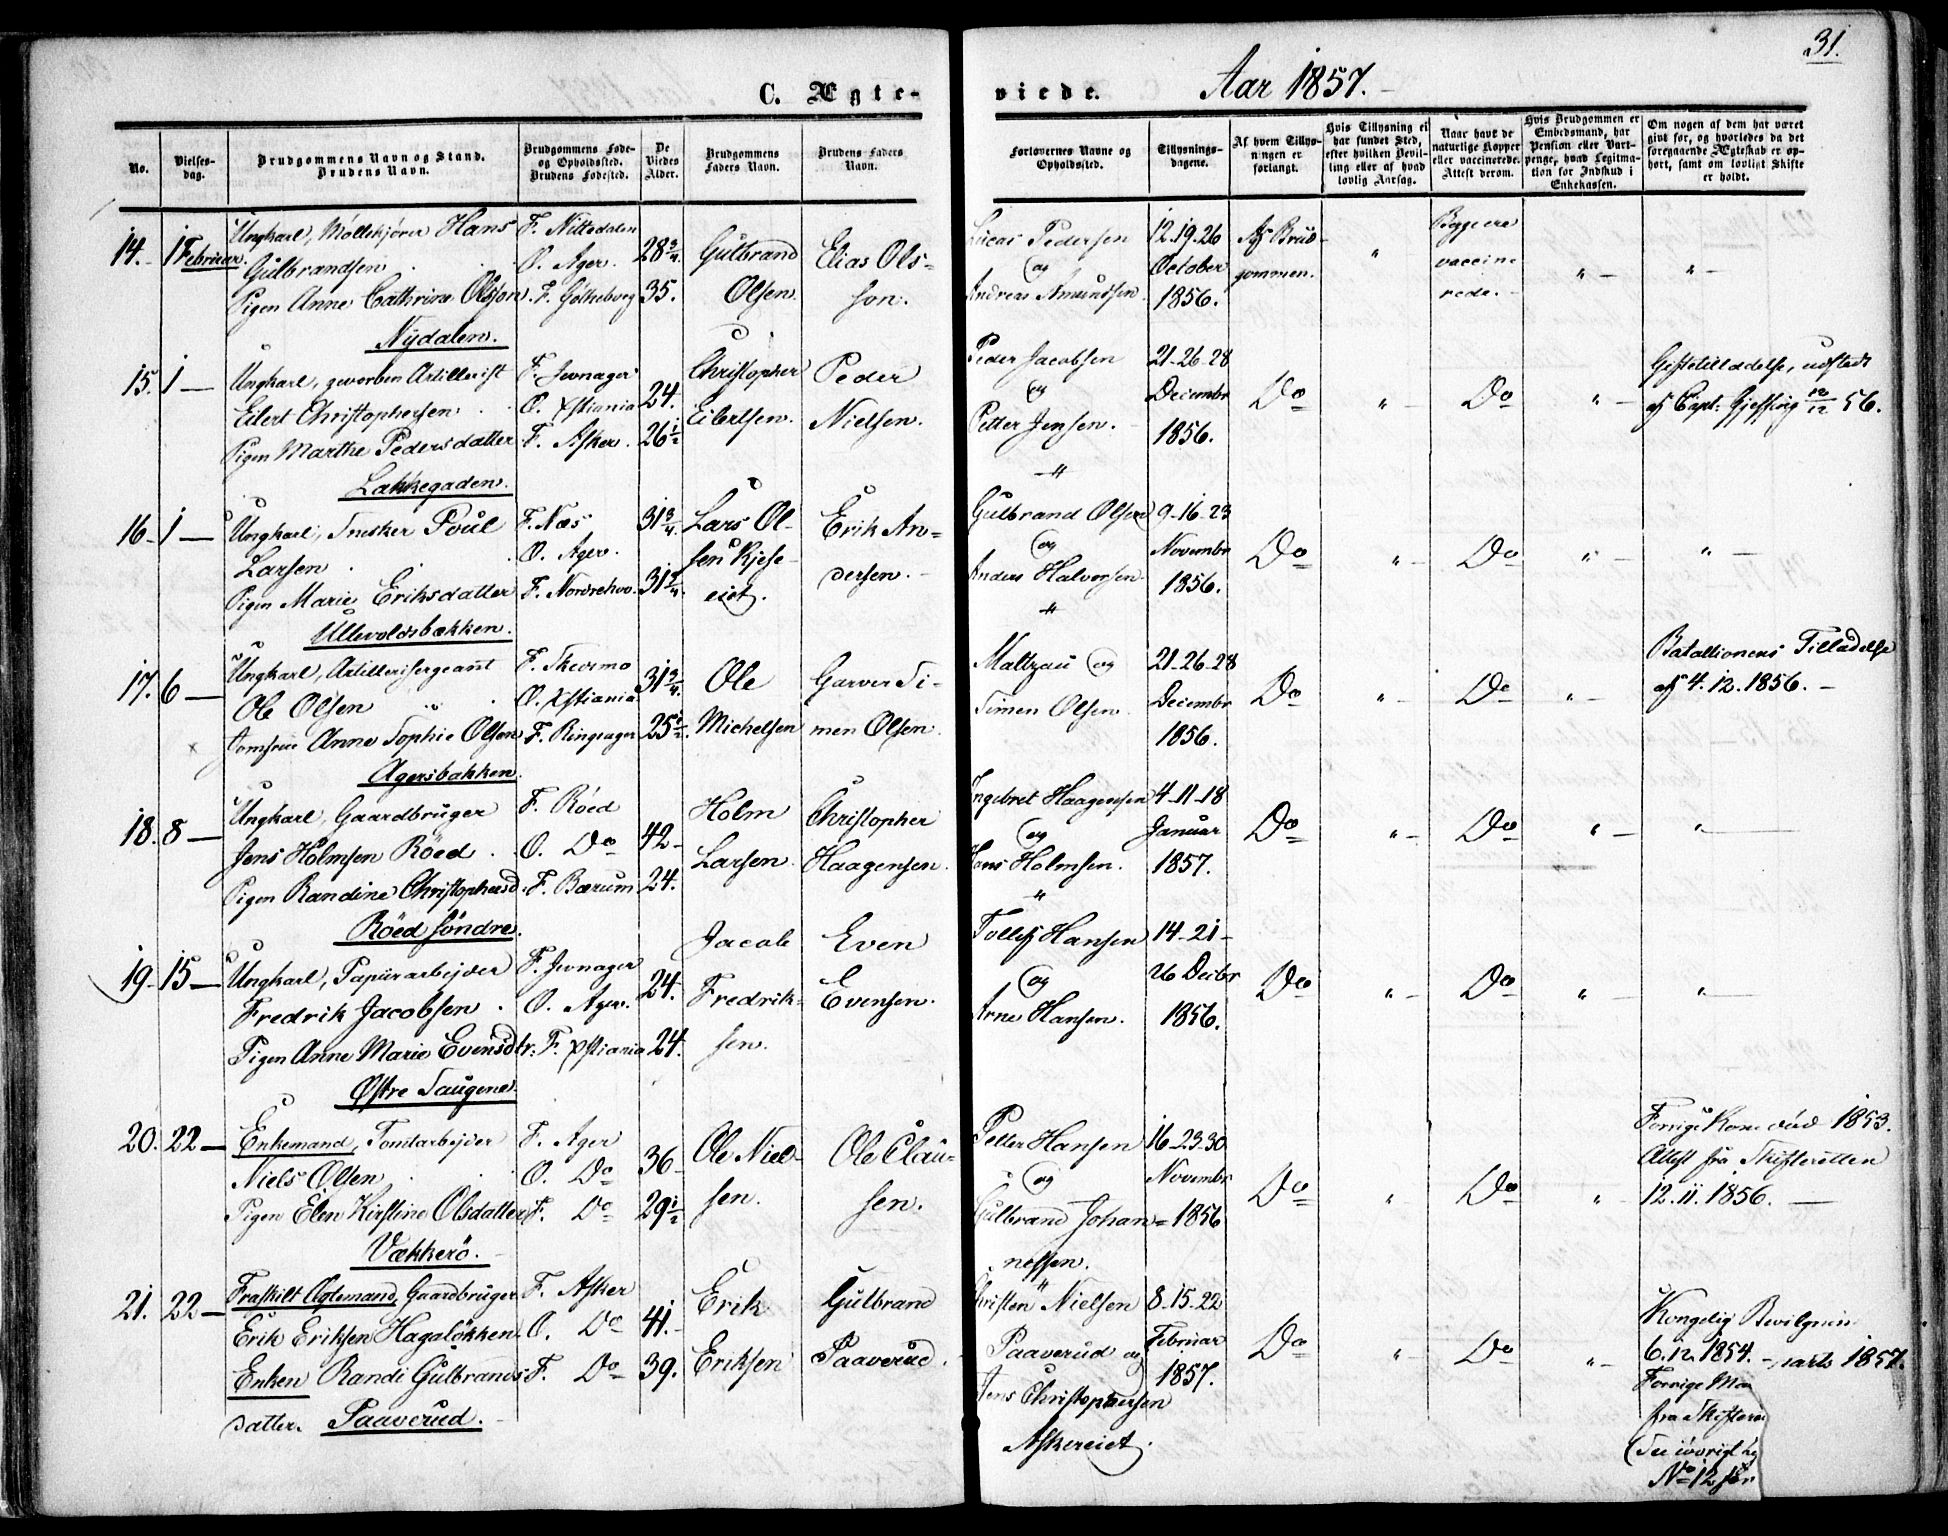 31.
C. Ægte-
viede.
Aar 1857.
No.
Vielses-
dag.
Brudgommens Navn og Stand.
Brudens Navn.
Brudgommens Føde-
og Opholdssted.
Brudens Fødested.
De
Viedes
Alder.
Brudgommens
Faders Navn.
Brudens Faders
Navn.
Forlovernes Navne og
Opholdssted.
Tillysnings-
dagene.
Af hvem Tillys-
ningen er
forlangt.
Hvis Tillysning ei
har fundet Sted,
efter hvilken Bevil-
ling eller af hvad
lovlig Aarsag.
Naar havt de
naturlige Kopper
eller vaccinerede.
Attest derom.
Hvis Brudgommen er
Embedsmand, har
Pension eller Vart-
penge, hvad Legitima-
tion for Indskud i
Enkekassen.
Om nogen af dem har været
gift før, og hvorledes da det
foregaaende Ægteskab er op-
hørt, samt om lovligt Skifte
er holdt.
14. 1 Februar.
Ungkarl, Møllekjører Hans
Gulbrandsen
Pigen Anne Cathrine Olsson.
Nydalen.
F. Nittedalen
O. Ager.
F. Gøtheborg
28 3/4
35.
Gulbrand
Olsen
Elias Ols-
son.
Lucas Pedersen
og
Andreas Amundsen
12.19.26
October
1856.
Af Brud-
gommen.
"
Begge re
vaccine
rede.
" "
15. 1 —
Ungkarl, gevorben Artillerist
Eilert Christophersen
Pigen Marthe Pedersdatter
Lakkegaden.
F. Jevnager
O. Xstiania
F. Asker.
24.
26 1/2
Christopher
Eilertsen.
Peder
Nielsen.
Peder Jacobsen
og
Petter Jensen.
"
21-26-28
Decembr
1856.
Do " Do "
Giftetilladelse, udstedt
af Capt: Gjessing 56.
16. 1 —
Ungkarl, Snedker Poul
Larsen
Pigen Marie Eriksdatter
Ullevoldsbækken.
F. Næs
O. Ager.
F. Norderhov.
31 3/4.
31 3/4.
Lars Ol-
sen Kjese-
eiet.
Erik An-
dersen.
Gulbrand Olsen
og
Anders Halvorsen
"
9-16-23
Novembr
1856.
Do " Do " "
17. 6 —
Ungkarl, Artillerisergeant
Ole Olsen
Jomfrue Anne Sophie Olsen
Agersbakken.
F. Skedsmo
O. Xstiania
F. Ringsager
31 3/4.
25 1/2.
Ole
Michelsen
Garver Si-
men Olsen.
Maltzau og
Simen Olsen
21-26-28
Decembr
1856.
Do " Do "
Batallionens Tilladelse
af 4.12.1856.
18. 8 —
Ungkarl, Gaardbruger
Jens Holmsen Røed
Pigen Randine Christophersd.
Røed søndre.
F. Røed
O. Do
F. Bærum
42
24.
Holm
Larsen.
Christopher
Haagensen.
Ingebret Haagensen
og
Hans Holmsen.
"
4-11-18
Januar
1857.
Do " Do " "
19. 15 —
Ungkarl, Papiirarbejder
Fredrik Jacobsen
Pigen Anne Marie Evensdtr:
Østre Taugene.
F. Jevnager
O. Ager.
F. Xstiania
24.
24.
Jacob
Fredrik-
sen.
Even
Evensen.
Tollef Hansen
og
Arne Hansen.
14-21-
26 Decbr
1856.
Do " Do " "
20. 22 —
Enkemand, Tomtarbejder
Niels Olsen
Pigen Elen Kirstine Olsdatter
Vækkerö.
F. Ager
O. Do
F. Do
36
29 1/2
Ole Niel-
sen.
Ole Clau-
sen.
Petter Hansen
og
Gulbrand Johan-
nessen.
16-23-30
Novembr
1856
Do " Do "
Forrige Kone død 1853.
Attest fra Skifteretten
12.11.1856.
21. 22 —
Fraskilt Ægtemand, Gaardbruger
Erik Eriksen Hagaløkken
Enken Randi Gulbrands
datter. Paaverud.
F. Asker
O. Do
F. Do
41.
39.
Erik
Eriksen
Gulbrand
Paaverud.
Christen Nielsen
Paaverud og
Jens Christophersen
Askereiet.
8-15-22
Februar
1857.
Do " Do "
Kongelig Bevilgnin
6.12.1854. 1857.
Forrige Ma
fra Skiftere
(See iøvrigt
No 12 for